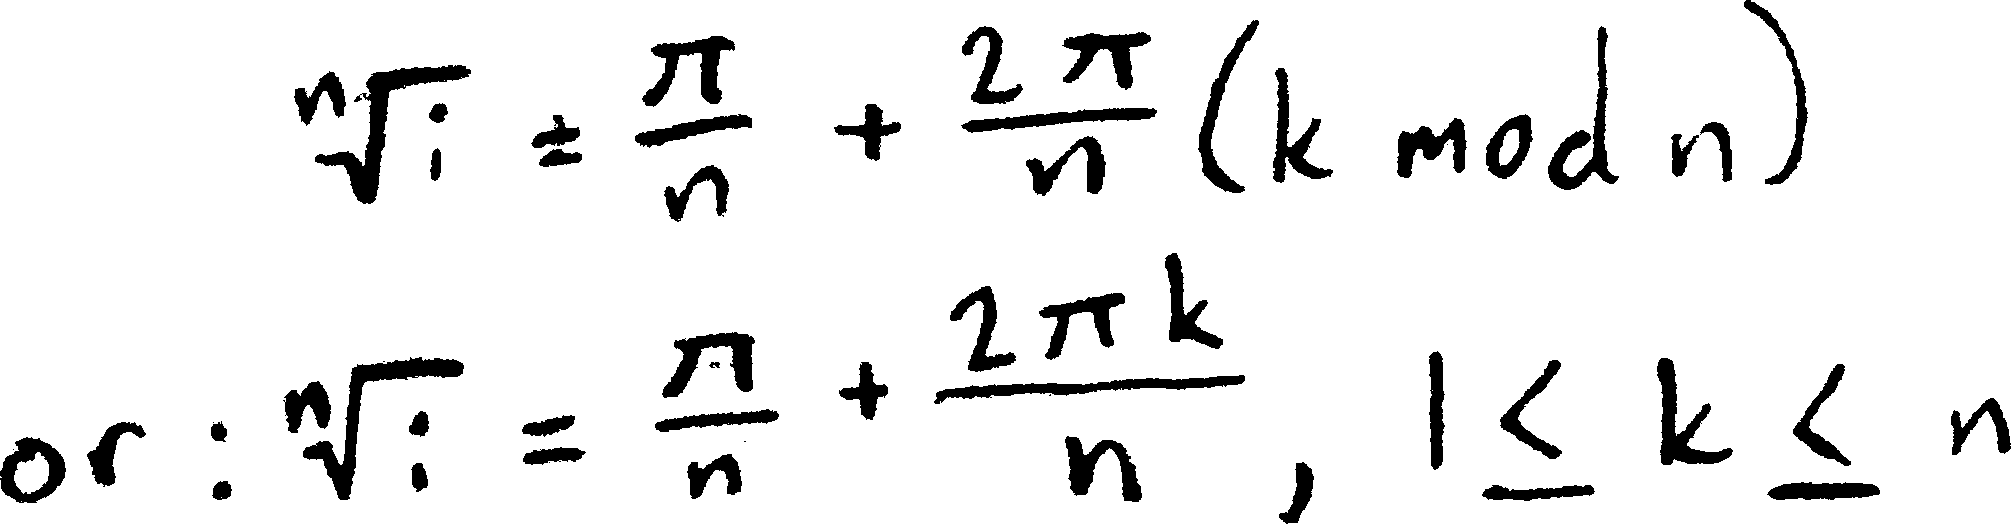 ⁿ√i = π/n + 2π/n (k mod n)
or: ⁿ√i = π/n + 2πk/n, 1 ≤ k ≤ n